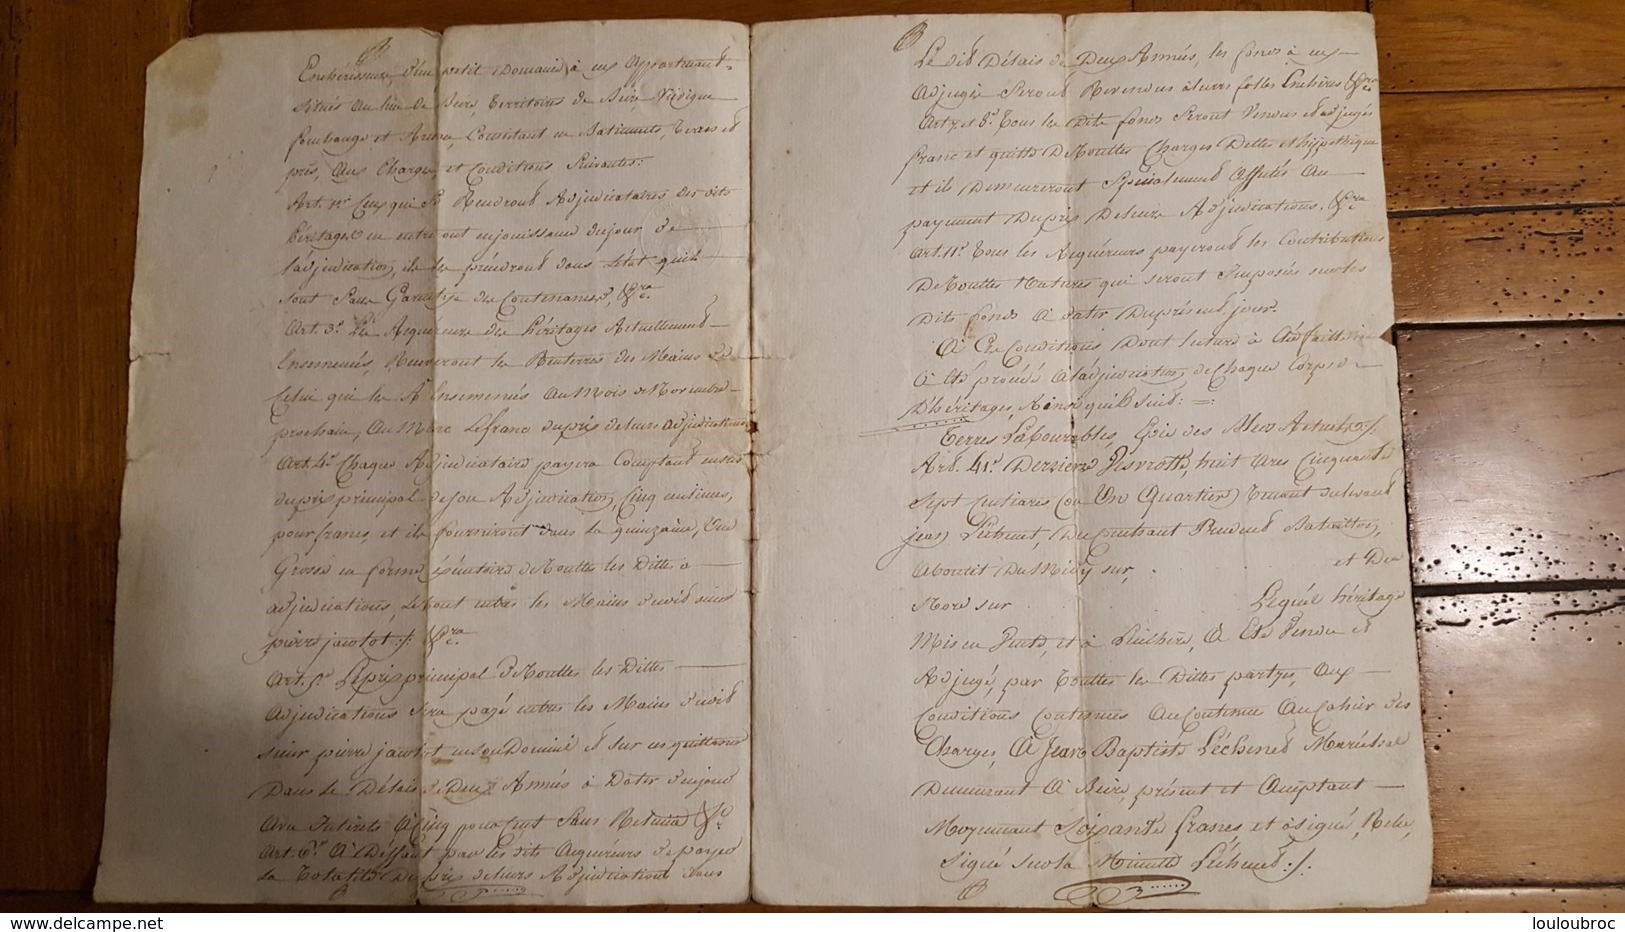 Enchérisseur, d'un petit Domaine, à eux appartenant
situés au lieu de Beire, territoires de Beire, Véxigne
et consistant en Batiments, terres et
prés, aux charges et Conditions Suivantes:
Art. 1er Ceux qui se Rendront Adjudicataires des dits
héritages en entreront en jouissance du jour de
l'adjudication, ils les prendront dans l'état qu'ils
sont sans Garantye des Contenances, &ra
Art. 3e Les Acquéreurs des héritages Actuellement
Ensemencés, Recevront les des Mains de
Celui qui les a Ensemencés au Mois de Novembre
prochain, au Marc Le franc du prix de leurs adjudications
Art. 4e Chaque Adjudicataire payera Comptant en sus
du prix principal de son Adjudication, Cinq centimes,
pour francs, et ils fourniront dans la quinzaine, Une
Grosse en forme éxécutoire de Touttes les Dittes
adjudications, Le tout entre les Mains dudit sieur
pierre jacotot ./. &ra
Art. 5e Le prix principal de Touttes les Dittes
Adjudications sera payé entre les Mains dudit
sieur pierre jacotot en son Domicile et sur ses quittances
Dans le Délais de Deux Années à Dater d'aujourd
avec Intérets à Cinq pour cent Sans Retenue &c
Art. 6e à Déffaut par les dits Acquéreurs de payer
la totalité Du prix de leurs Adjudications dans
Le dit Délais de Deux Années, les fonds à eux
adjugés Seront Revendus à leurs folles Enchères &ra
Art. 7 et 8e Tous les Dits fonds Seront Vendus et adjugés
franc et quitte de Touttes Charges Dettes et hippothèque
et ils Demeureront Spécialement affectés au
payement Du prix De leurs Adjudications. &ra
Art. 11e Tous les Acquéreurs payeront les Contributions
De Touttes Natures qui seront Imposés sur les
Dits fonds à dater Du présent jour.
à Ces Conditions Dont lecture à été faitte
à été procédé à l'adjudication de Chaque Corps
D'héritages, Ainsi qu'il suit: =:
Terres Labourables,
Art. 41e Derriere huit Ares Cinquante
Sept Centiares (ou Un Quartier) Tenant du levant
jean Léchenet, Du Couchant Prudent Bataillon,
Aboutit Du Midy sur, et Du
Nord sur Lequel héritage
Mis en Vente, et à L'enchère, à Eté Vendu et
Adjugé, par Touttes les Dittes partyes, aux
Conditions Contenues au Cahier des
Charges, à Jean Baptiste Léchenet Maréchal
Demeurant à Beire, présent et acceptant
Moyennant Soixante francs et à signé,
Signé sur la Minutte Léchenet ./.
louloubroc